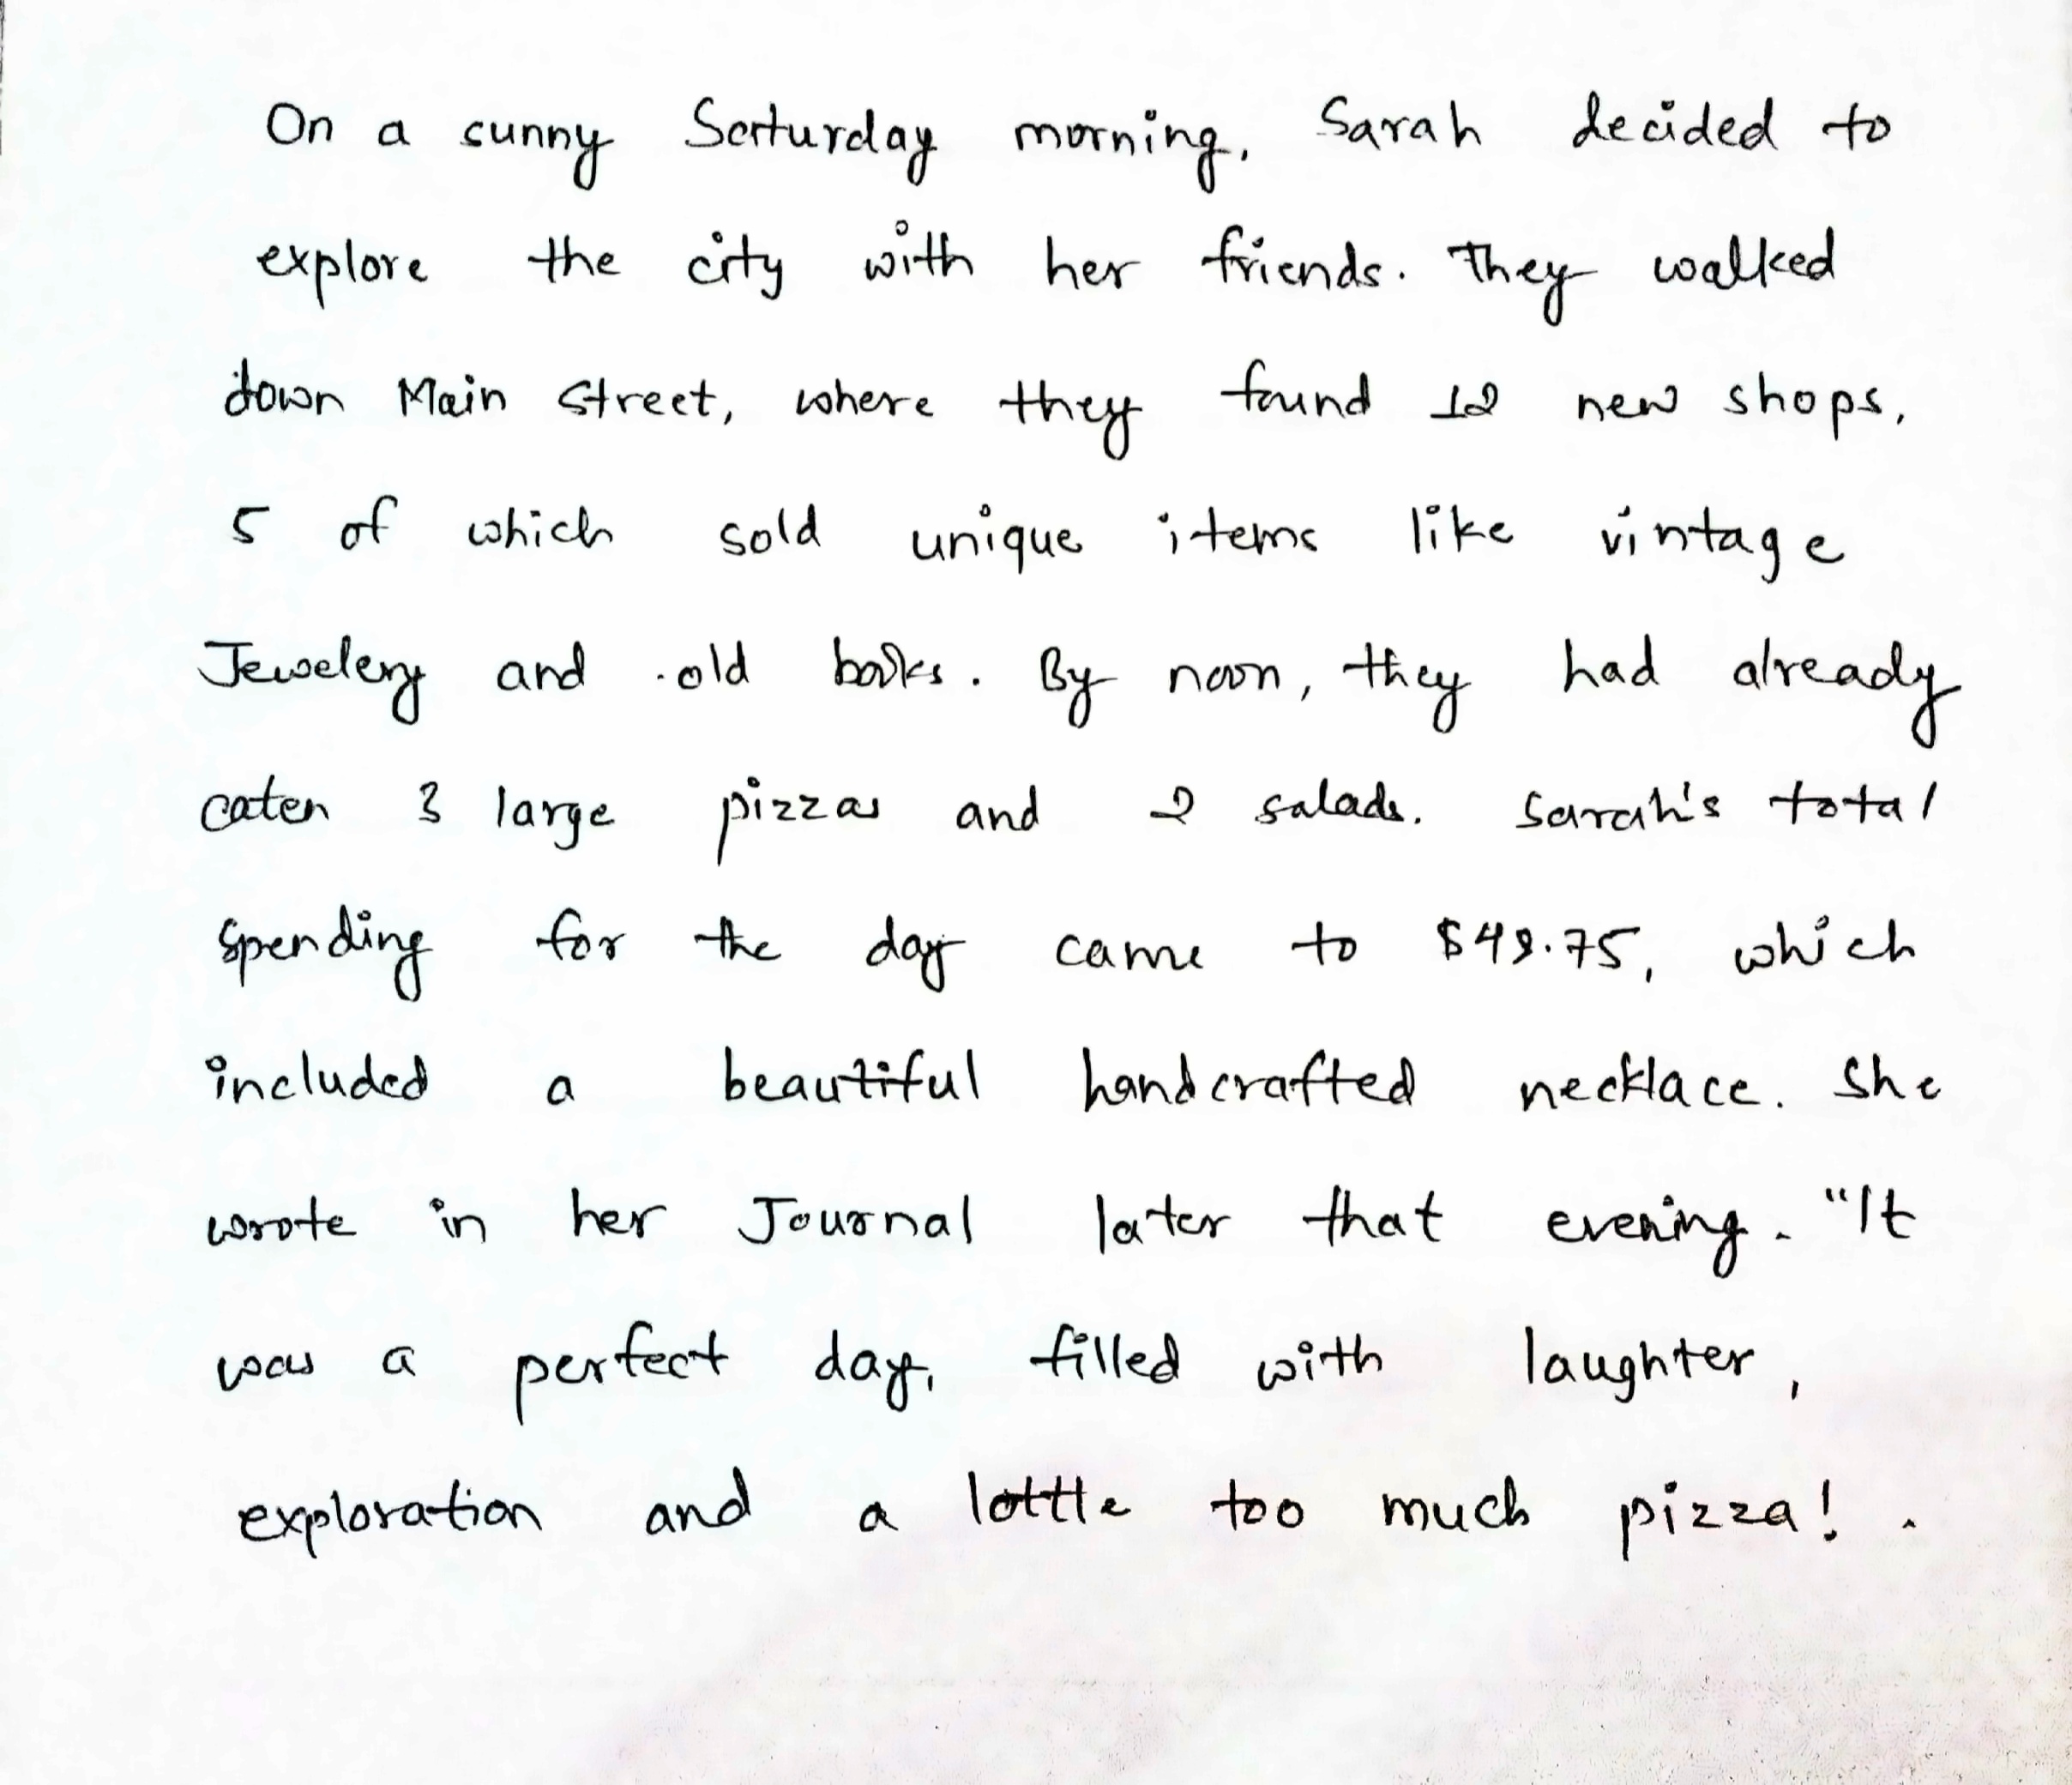 On a sunny Saturday morning, Sarah decided to
explore the city with her friends. They walked
down Main Street, where they found 12 new shops,
5 of which sold unique items like vintage
Jewelery and old books. By noon, they had already
eaten 3 large pizzas and 2 salads. Sarah's total
spending for the day came to $49.75, which
included a beautiful handcrafted necklace. She
wrote in her Journal later that evening. "It
was a perfect day, filled with laughter,
exploration and a lottle too much pizza! .